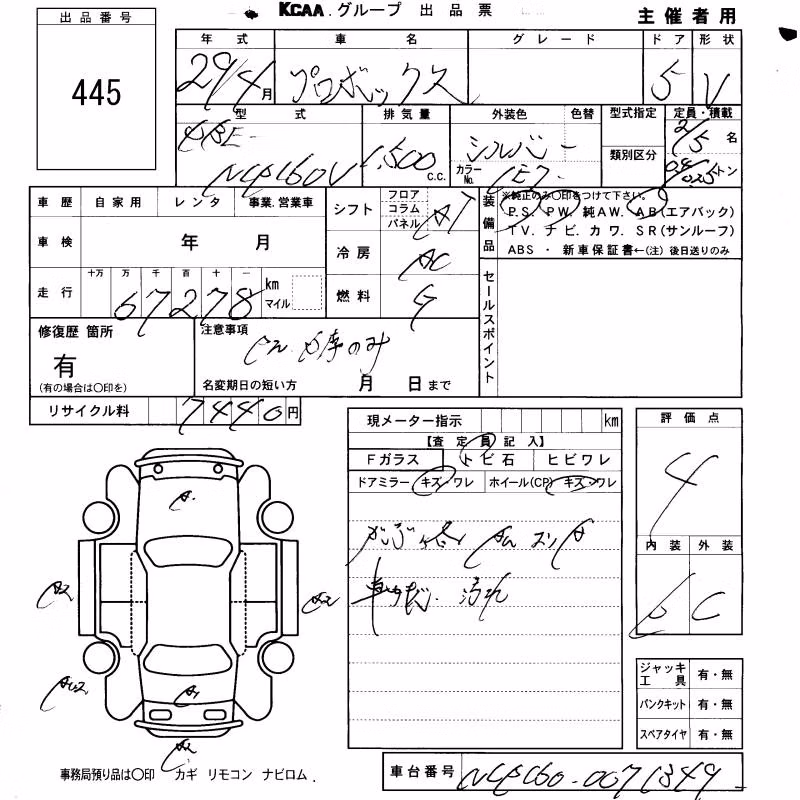 KCAA グループ 出品票
主催者用
出品番号
445
年式 車名 グレード ドア 形状
29/4月 プロボックス 5 V
型式 排気量 外装色 色替 型式指定 定員・積載
DBE-NCP160V 1,500 c.c. シルバー カラーNo. 1E7 類別区分 2/5名 トン
車歴 自家用 レンタ 事業.営業車
シフト フロア コラム パネル AT
装備品 ※純正のみ〇印をつけて下さい。
P.S. P.W. 純AW. AB(エアバック)
T.V. ナビ. カワ. SR(サンルーフ)
ABS ・ 新車保証書←(注) 後日送りのみ
車検 年 月
冷房 AC
走行 十万 万 千 百 十 一 km マイル
67278
燃料 G
セールスポイント
修復歴 箇所
有
(有の場合は〇印を)
注意事項
のみ
名変期日の短い方 月 日まで
リサイクル料 7440円
現メーター指示 km
【査定員記入】
Fガラス トビ石 ヒビワレ
ドアミラー キズ/ワレ ホイール(CP) キズ/ワレ
汚れ
評価点
4
内装 外装
C
A1
A2
A2
A2
ジャッキ工具 有・無
パンクキット 有・無
スペアタイヤ 有・無
事務局預り品は〇印 カギ リモコン ナビロム.
車台番号 NCP160-0071349